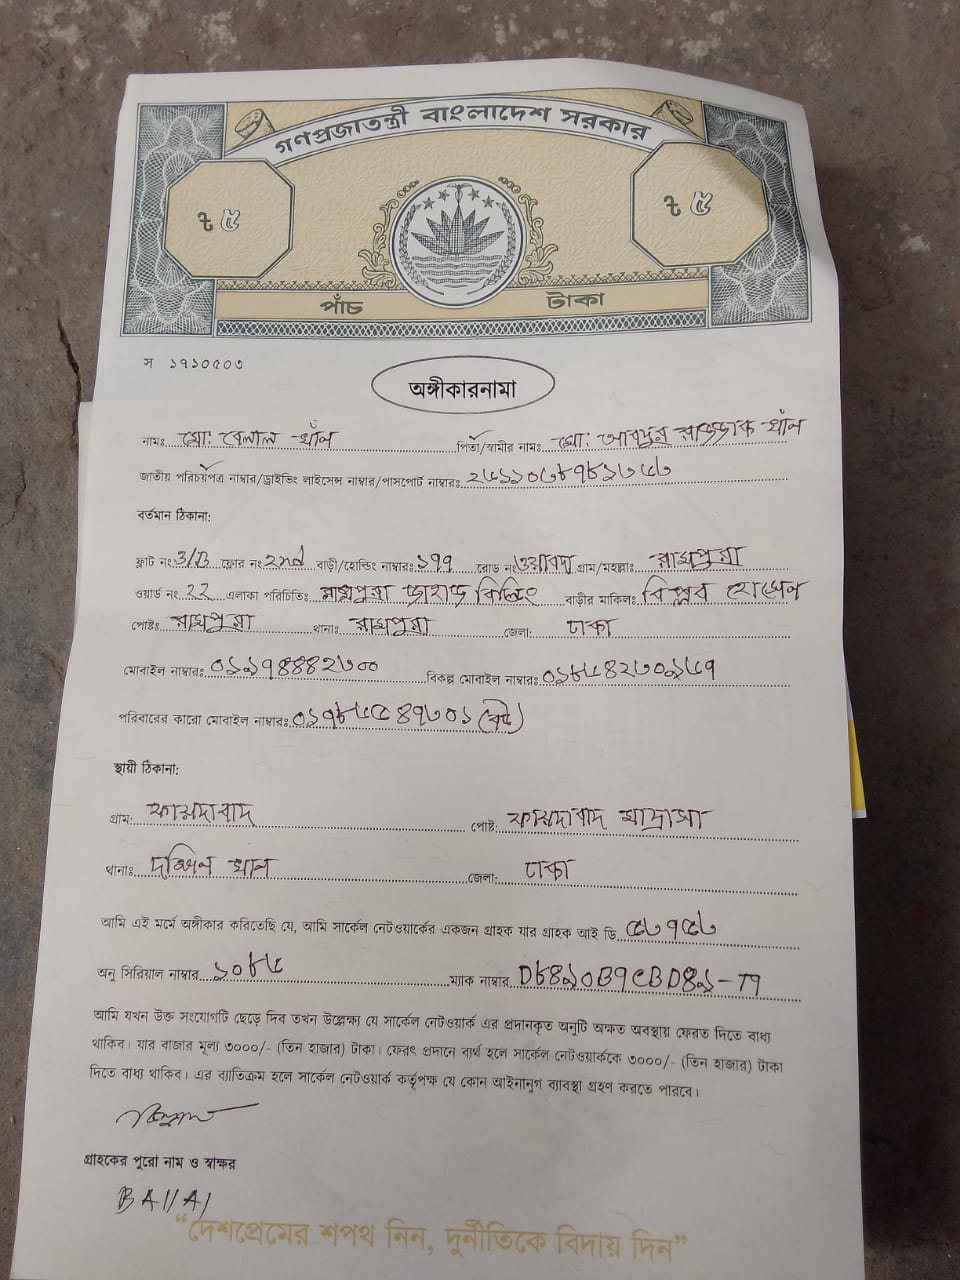 গণপ্রজাতন্ত্রী বাংলাদেশ সরকার
৳ ৫ ৳ ৫
পাঁচ টাকা
স ১৭১০৫০৩
অঙ্গীকারনামা
নামঃ মোঃ বেলাল খাঁন পিতা/স্বামীর নামঃ মোঃ আবদুর রাজ্জাক খাঁন
জাতীয় পরিচয়পত্র নাম্বার/ড্রাইভিং লাইসেন্স নাম্বার/পাসপোর্ট নাম্বারঃ
বর্তমান ঠিকানা:
ফ্লাট নং 3/B ফ্লোর নং 2nd বাড়ী/হোল্ডিং নাম্বারঃ ১৭৭ রোড নং ওয়াবদা গ্রাম/মহল্লাঃ রামপুরা
ওয়ার্ড নং 22 এলাকা পরিচিতিঃ রামপুরা জাহাজ বিল্ডিং বাড়ীর মালিকঃ বিপ্লব হোসেন
পোষ্টঃ রামপুরা থানাঃ রামপুরা জেলা: ঢাকা
মোবাইল নাম্বারঃ বিকল্প মোবাইল নাম্বারঃ
পরিবারের কারো মোবাইল নাম্বারঃ
স্থায়ী ঠিকানা:
গ্রাম: ফায়দাবাদ পোষ্ট: ফায়দাবাদ মাদ্রাসা
থানাঃ দক্ষিন খান জেলা: ঢাকা
আমি এই মর্মে অঙ্গীকার করিতেছি যে, আমি সার্কেল নেটওয়ার্কের একজন গ্রাহক যার গ্রাহক আই ডি
অনু সিরিয়াল নাম্বার ১০৮৫ ম্যাক নাম্বার
আমি যখন উক্ত সংযোগটি ছেড়ে দিব তখন উল্লেক্ষ্য যে সার্কেল নেটওয়ার্ক এর প্রদানকৃত অনুটি অক্ষত অবস্থায় ফেরত দিতে বাধ্য
থাকিব। যার বাজার মূল্য ৩০০০/- (তিন হাজার) টাকা। ফেরৎ প্রদানে ব্যর্থ হলে সার্কেল নেটওয়ার্ককে ৩০০০/- (তিন হাজার) টাকা
দিতে বাধ্য থাকিব। এর ব্যতিক্রম হলে সার্কেল নেটওয়ার্ক কর্তৃপক্ষ যে কোন আইনানুগ ব্যাবস্থা গ্রহণ করতে পারবে।
গ্রাহকের পুরো নাম ও স্বাক্ষর
"দেশপ্রেমের শপথ নিন, দুর্নীতিকে বিদায় দিন"